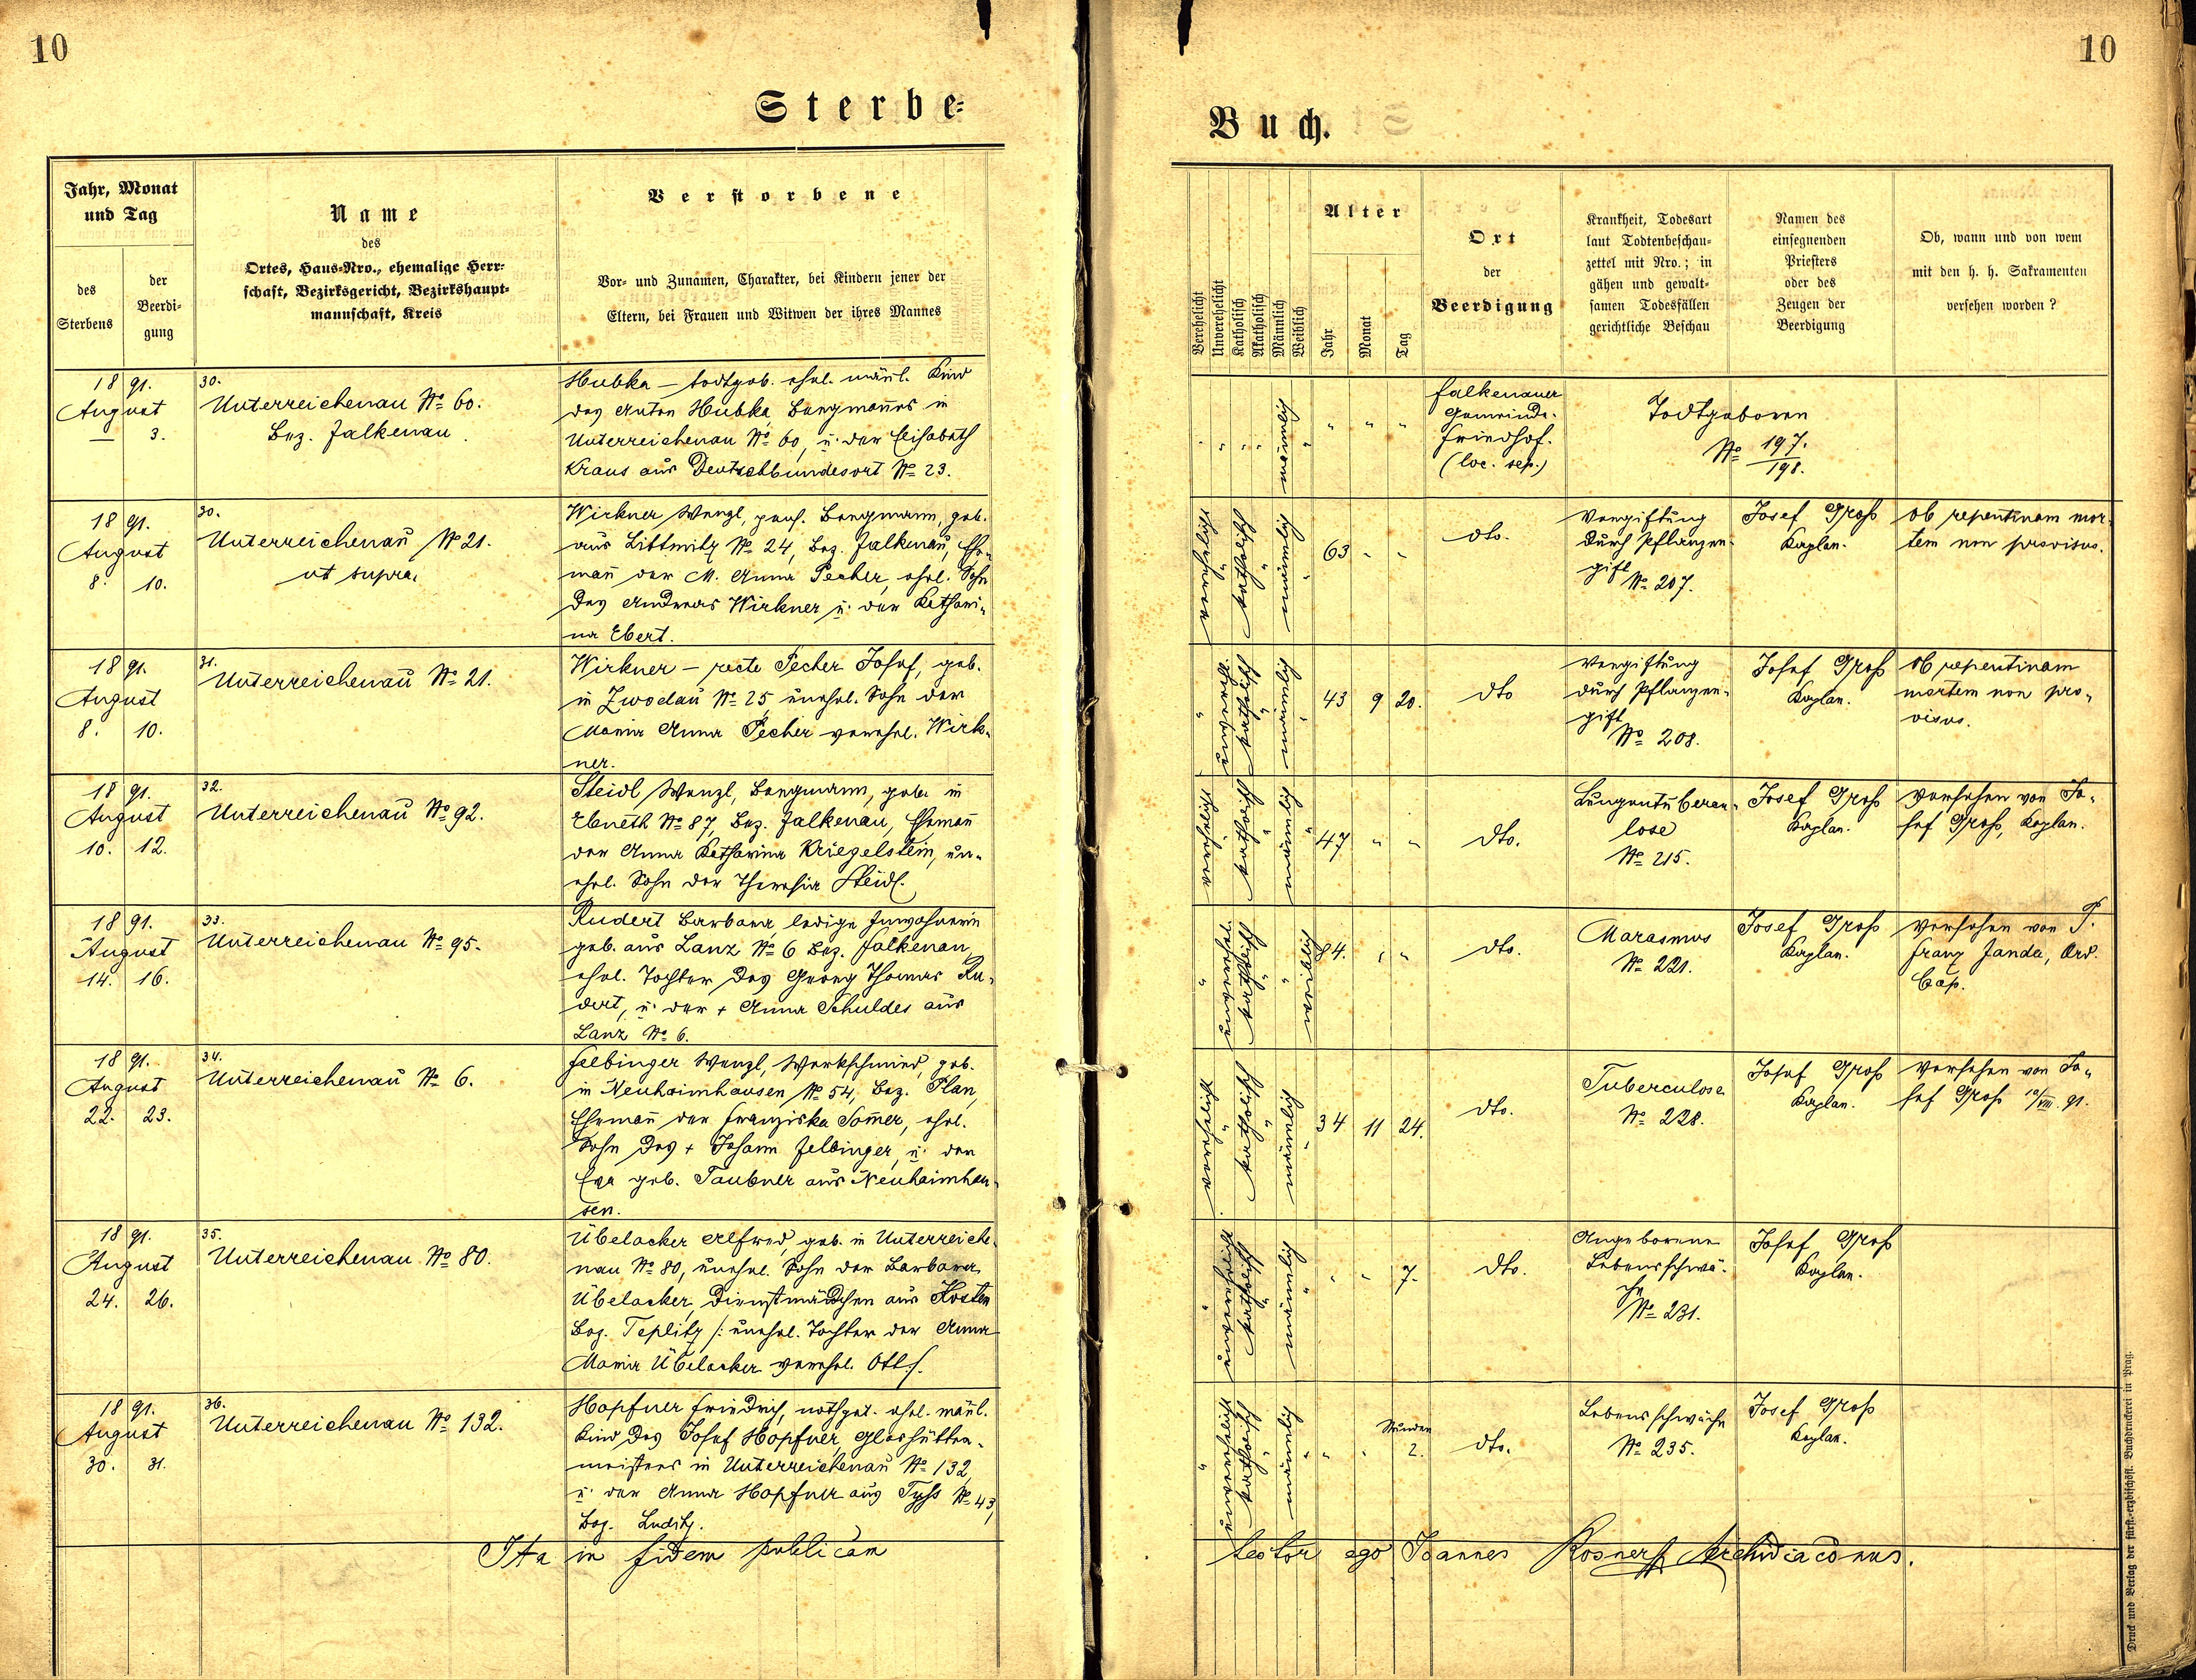 10
Sterbe-
Jahr, Monat
und Tag
des
Sterbens
der
Beerdi-
gung
Name
des
Ortes, Haus-Nro., ehemalige Herr-
schaft, Bezirksgericht, Bezirkshaupt-
mannschaft, Kreis
Verstorbene
Vor- und Zunamen, Charakter, bei Kindern jener der
Eltern, bei Frauen und Witwen der ihres Mannes
1891.
August
— 3.
30.
Unterreichenau No 60.
Bez. Falkenau.
Hubka — todtgeb. ehel. mänl. Kind
des Anton Hubka, Bergmanes in
Unterreichenau No 60, u. der Elisabeth
Kraus aus Deutschbundesort No 23.
1891.
August
8. 10.
30.
Unterreichenau No 21.
ut supra.
Wirkner Wenzl, pens. Bergmann, geb.
aus Littmitz No 24, Bez. Falkenau, Ehe-
man der M. Anna Pecher, ehel. Sohn
des Andreas Wirkner u. der Kathari-
na Ebert.
1891.
August
8. 10.
31.
Unterreichenau No 21.
Wirkner — recte Pecher Josef, geb.
in Zwodau No 25, unehel. Sohn der
Maria Anna Pecher verehel. Wirk-
ner.
1891.
August
10. 12.
32.
Unterreichenau No 92.
Steidl Wenzl, Bergmann, geb. in
Ebneth No 87, Bez. Falkenau, Eheman
der Anna Katharina Kriegelstein, un-
ehel. Sohn der Theresia Steidl.
1891.
August
14. 16.
33.
Unterreichenau No 95.
Rudert Barbara, ledige Inwohnerin
geb. aus Lanz No 6 Bez. Falkenau,
ehel. Tochter des Georg Thomas Ru-
dert, u. der + Anna Schuldes aus
Lanz No 6.
1891.
August
22. 23.
34.
Unterreichenau No 6.
Felbinger Wenzl, Werkschmied, geb.
in Neuhaimhausen No 54, Bez. Plan,
Eheman der Franziska Somer, ehel.
Sohn des + Johann Felbinger, u. der
Eva geb. Taubner aus Neuhaimhau-
sen.
1891.
August
24. 26.
35.
Unterreichenau No 80.
Übelacker Alfred, geb. in Unterreiche-
nau No 80, unehel. Sohn der Barbara
Übelacker, Dienstmädchen aus Kosten
Bez. Teplitz /: unehel. Tochter der Anna
Maria Übelacker verehel. Ott :/.
1891.
August
30. 31.
36.
Unterreichenau No 132.
Hopfner Friedrich, nothget. ehel. mänl.
Kind des Josef Hopfner, Glashütten-
meisters in Unterreichenau No 132,
u. der Anna Hopfner aus Tyss No 43,
Bez. Luditz.
Ita in fidem publicam
10
Buch.
Verehelicht
Unverehelicht
Katholisch
Akatholisch
Männlich
Weiblich
Alter
Jahr
Monat
Tag
Ort
der
Beerdigung
Krankheit, Todesart
laut Todtenbeschau-
zettel mit Nro.; in
gähen und gewalt-
samen Todesfällen
gerichtliche Beschau
Namen des
einsegnenden
Priesters
oder des
Zeugen der
Beerdigung
Ob, wann und von wem
mit den h. h. Sakramenten
versehen worden?
" " " " männlich " " " "
Falkenauer
Gemeinde-
friedhof.
(loc. sep.)
Todtgeboren
No 197./198.
verehelicht " katholisch " männlich " 63 " "
dto.
Vergiftung
durch Pflanzen-
gift
No 207.
Josef Gross
Kaplan.
Ob repentinam mor-
tem non provisus.
" unvereh. katholisch " männlich " 43 9 20.
dto
Vergiftung
durch Pflanzen-
gift
No 208.
Josef Gross
Kaplan.
Ob repentinam
mortem non pro-
visus.
verehelicht " katholisch " männlich " 47 " "
dto.
Lungentubercu-
lose
No 215.
Josef Gross
Kaplan.
Versehen von Jo-
sef Gross, Kaplan.
" unverehel. katholisch " " weiblich 84. " "
dto.
Marasmus
No 221.
Josef Gross
Kaplan.
Versehen von P.
Franz Janda, Ord.
Cap.
verehelicht " katholisch " männlich " 34 11 24.
dto.
Tuberculose
No 228.
Josef Gross
Kaplan.
Versehen von Jo-
sef Gross 10/VIII. 91.
" unverehelicht katholisch " männlich " " " 7.
dto.
Angeborene
Lebensschwä-
che
No 231.
Josef Gross
Kaplan.
" unverehelicht katholisch " männlich " " " Stunden
2.
dto.
Lebensschwäche
No 235.
Josef Gross
Kaplan.
testor ego Joannes Rosner Archidiaconus.
Druck und Verlag der fürst.-erzbischöfl. Buchdruckerei in Prag.